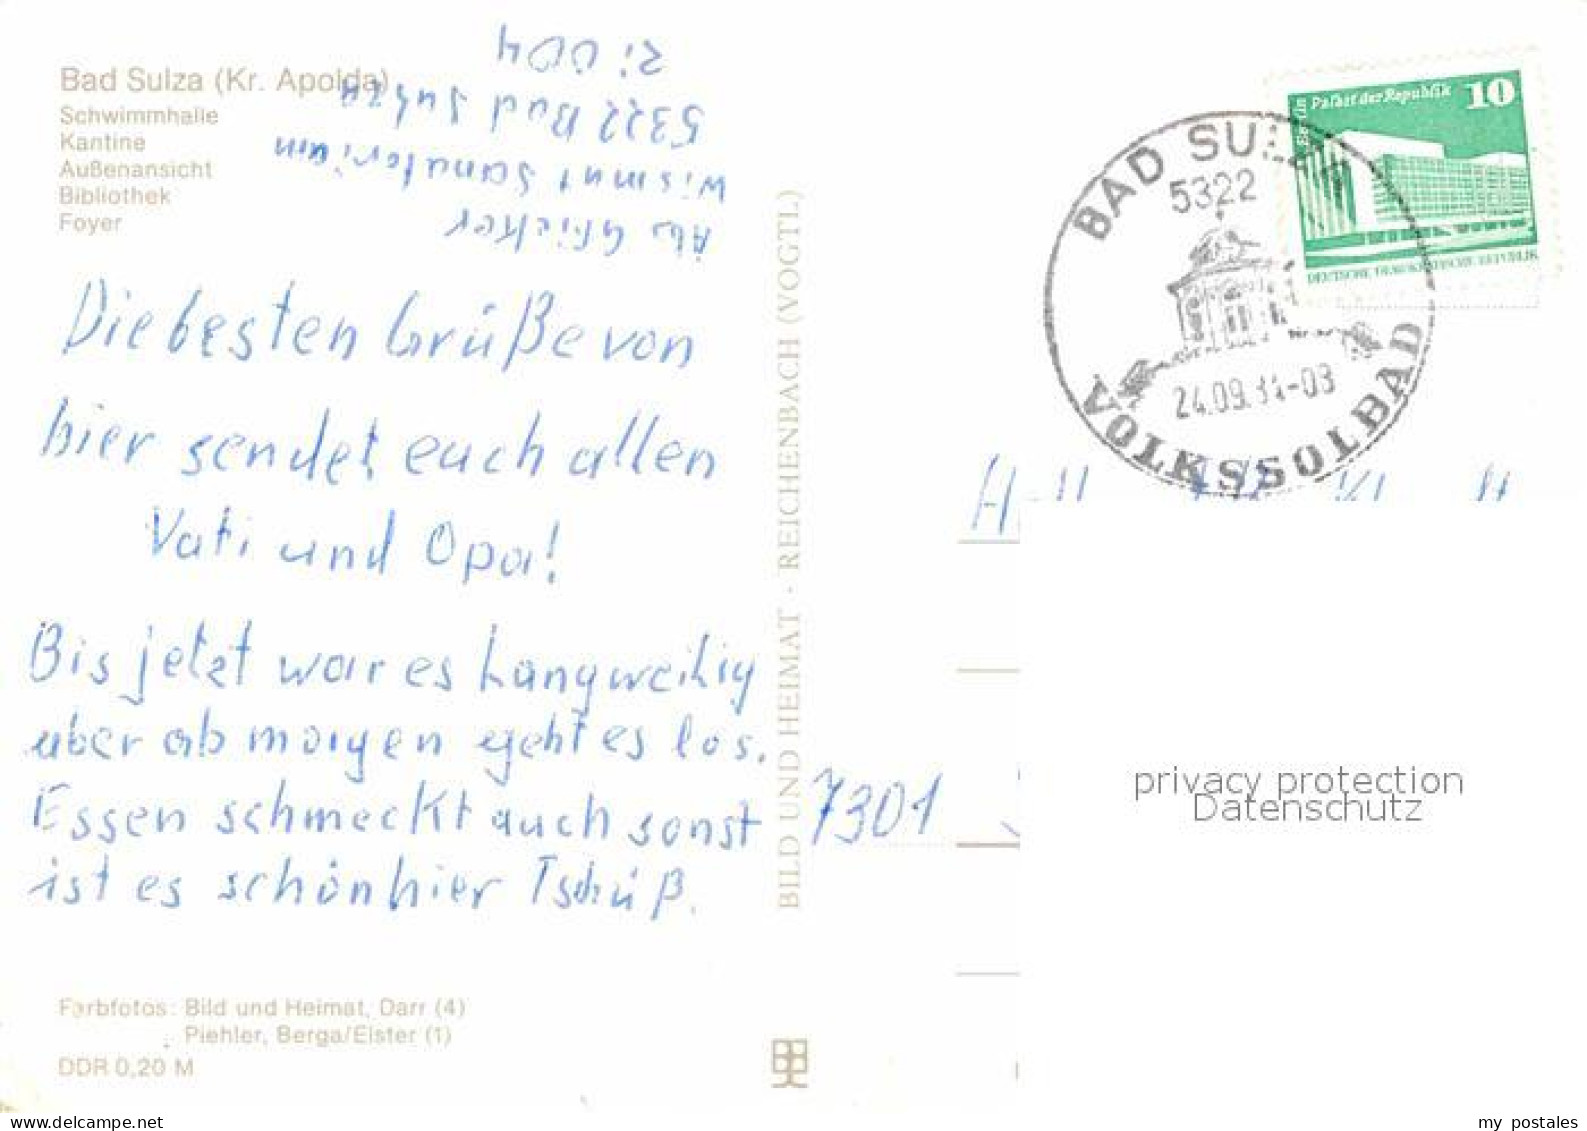 Bad Sulza (Kr. Apolda)
Schwimmhalle
Kantine
Außenansicht
Bibliothek
Foyer
Wismut Sanatorium
5322 Bad Sulza
Zi 004
Die besten Grüße von
hier sendet euch allen
Vati und Opa!
Bis jetzt war es Langweilig
aber ab morgen geht es los.
Essen schmeckt auch sonst
ist es schön hier Tschüß.
Farbfotos: Bild und Heimat, Darr (4)
Piehler, Berga/Elster (1)
DDR 0,20 M
BILD UND HEIMAT · REICHENBACH (VOGTL)
Berlin Palast der Republik 10
DEUTSCHE DEMOKRATISCHE REPUBLIK
BAD SULZA
5322
24.09.84-08
VOLKSSOLBAD
7301
privacy protection
Datenschutz
ansichtskartenlexikon.de
my postales